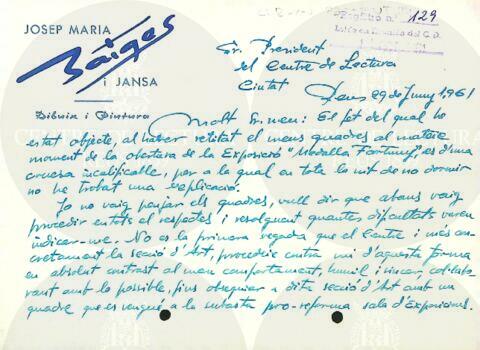 JOSEP MARIA
Baiges
i JANSA
Dibuix i Pintura
129
Sr. President
del Centre de Lectura
Ciutat
Reus 29 de Juny 1961
Molt Sr. meu: El fet del qual ho
estat objecte, al haver retitat el meus quadres al mateix
moment de la obertura de la Exposició "Medalla Fortuny", es d'una
cruesa incalificable, per a la qual en tota la nit de no dormir
no he trobat una explicació.
Jo no vaig penjar els quadres, vull dir que abans vaig
procedir en tots els respectes i resolguent quantes dificultats varen
indicar-me. No es la primera vegada que el Centre i més con-
cretament la secció d'Art, procedeix contra mi d'aquesta forma
en absolut contrast al meu comportament, humil i sincer, col·labo-
rant amb lo possible, fins obsequiar a dita secció d'Art amb un
quadre que es vengué a la subasta pro-reforma sala d'Exposicions.